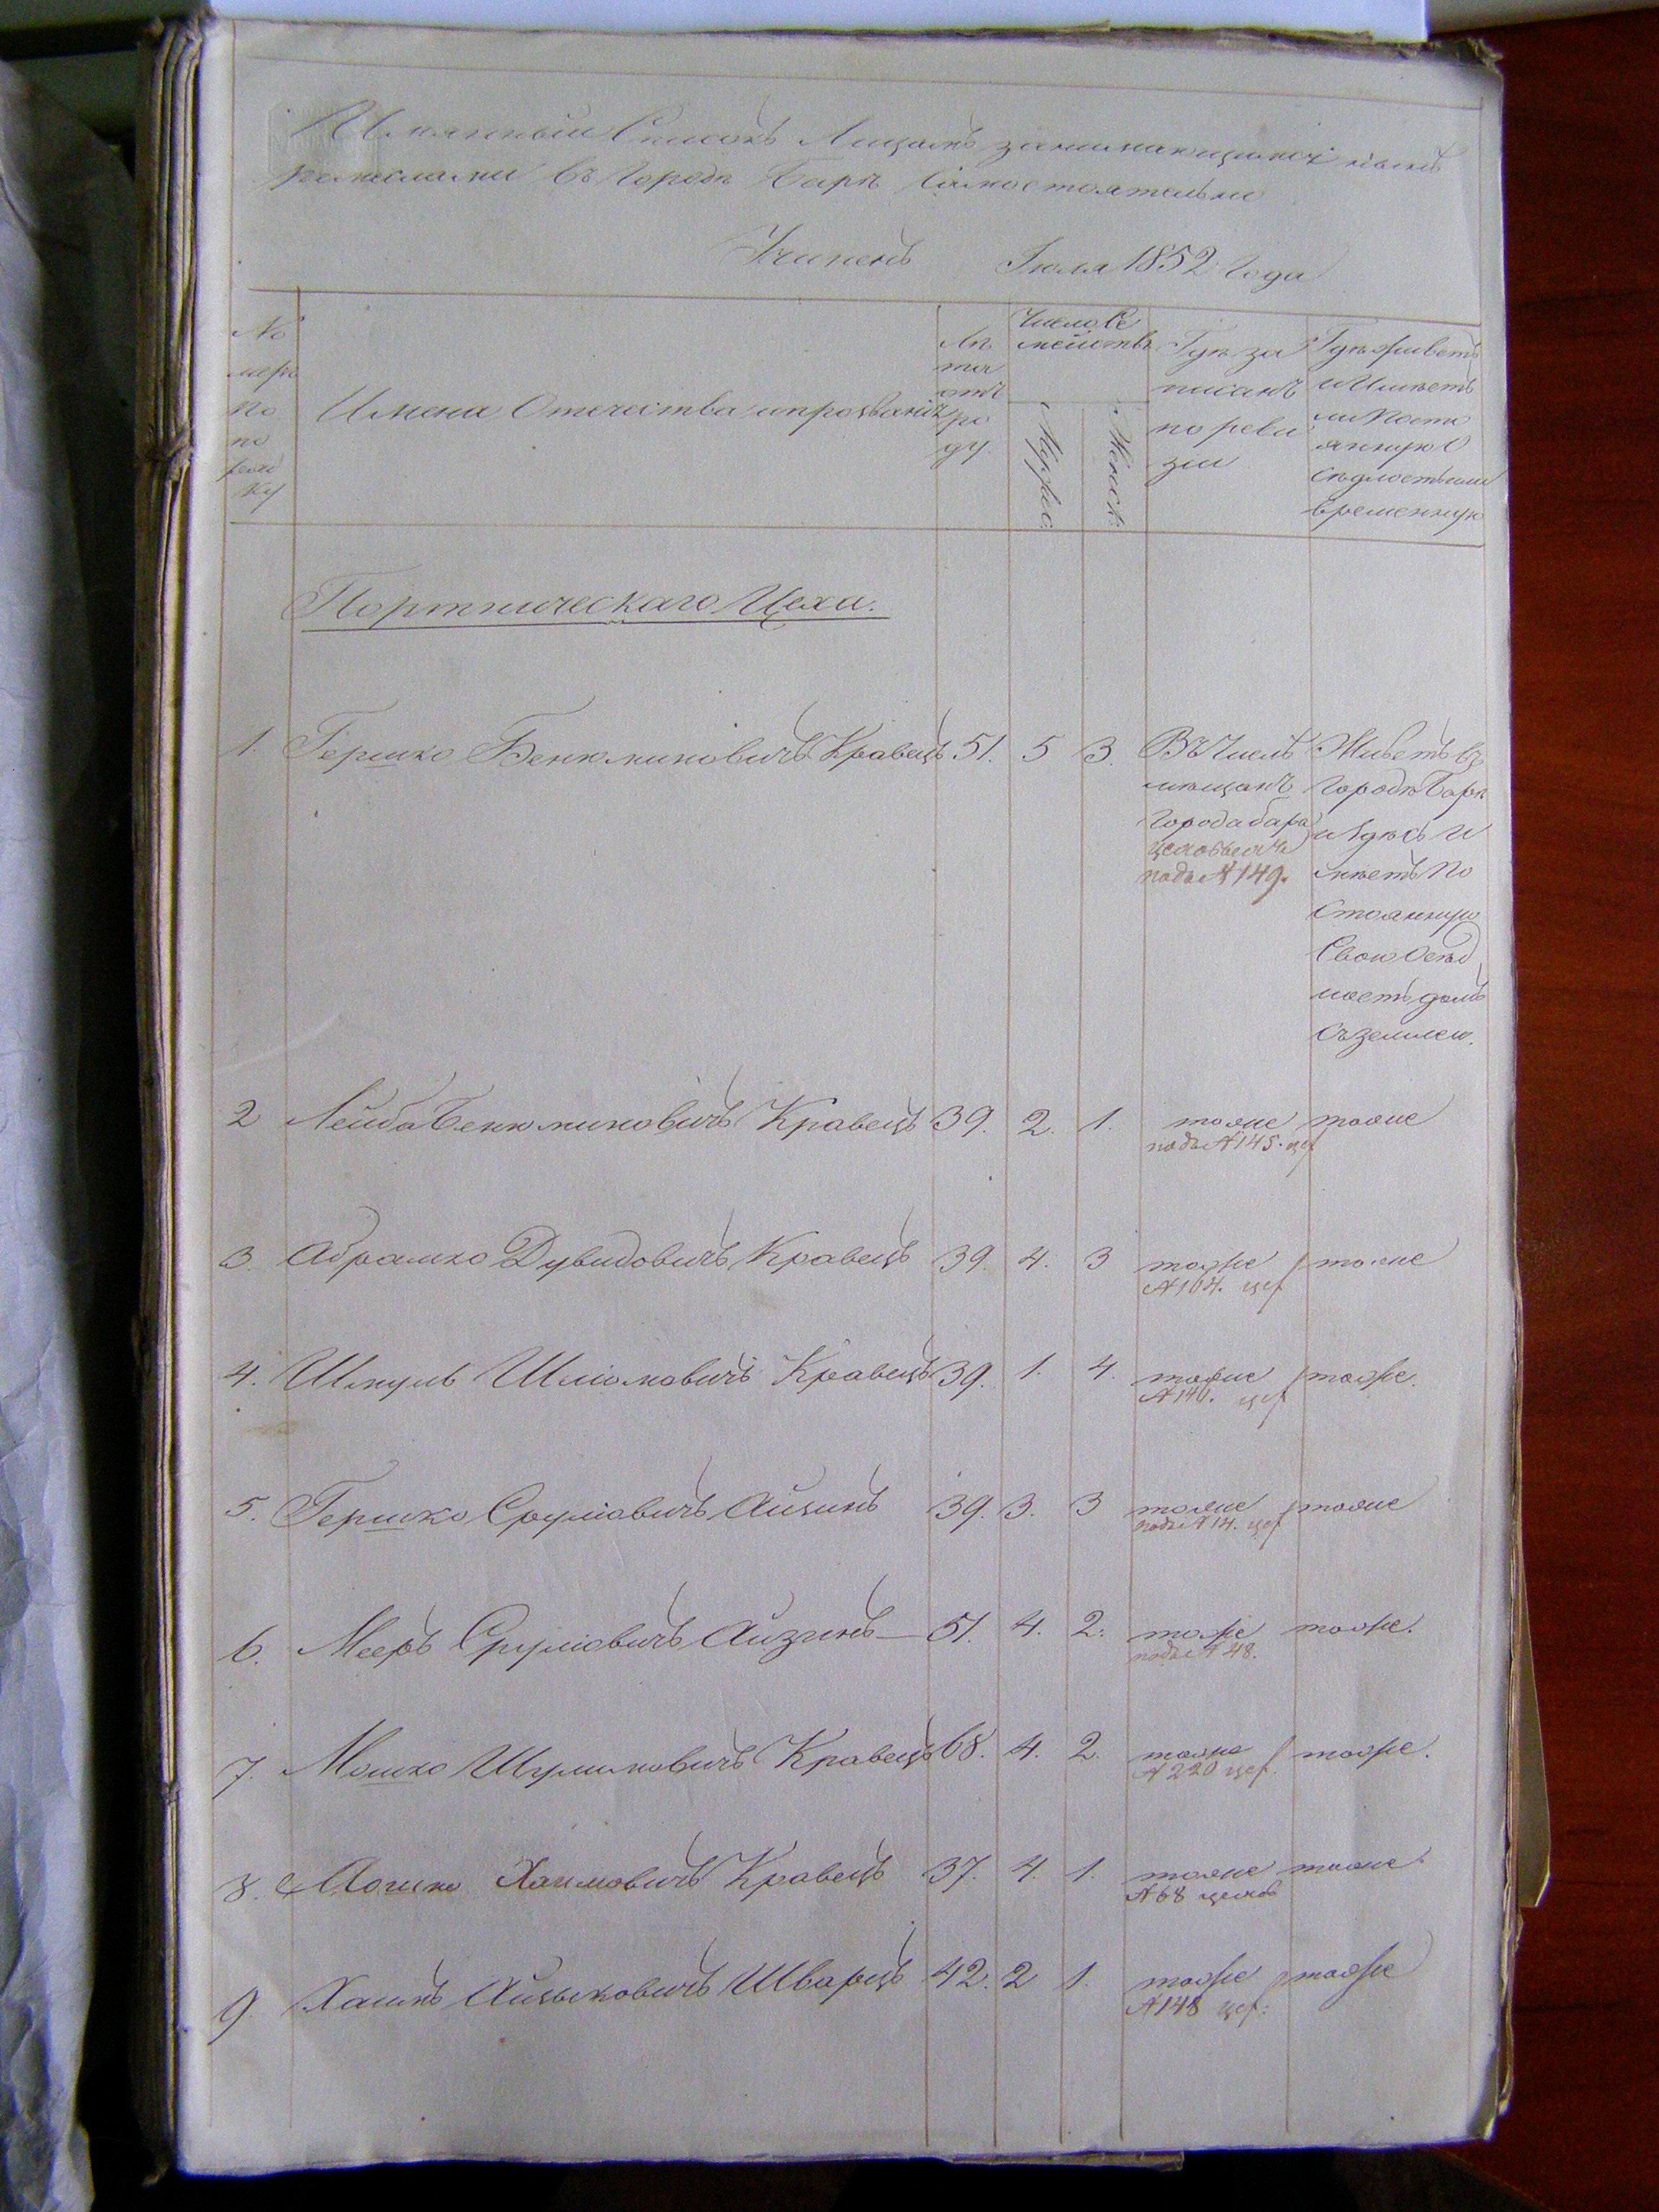 Имянный Списокъ Лицамъ занимающимся
ремеслами въ Городѣ Барѣ самостоятельно
Учиненъ Іюля 1852 Года
№
меръ
по
по
ряд
ку
Имена Отечества и прозваніи
Лѣ
та
отъ
ро
ду
Число Се
мействъ
Мужес:
Женск:
Гдѣ за
писанъ
по реви
зіи
Гдѣ живетъ
и Имѣетъ
ли Посто
янную О
сѣдлость или
временную
Портническаго Цеха.
1. Гершко Бенюминовичъ Кравецъ 51. 5 3. Въ Числѣ
мѣщанъ
Города бара
подъ № 149.
Живетъ въ
Городѣ Барѣ
и здѣсь И
мѣетъ По
стоянную
Свою Осѣд
лость домъ
съ землею.
2 Лейба Бенюминовичъ Кравецъ 39. 2. 1. тоже тоже
подъ № 145. цер
3. Абрамко Дувидовичъ Кравецъ 39. 4. 3 тоже тоже
№ 104. цер
4. Шмуль Шліомовичъ Кравецъ 39. 1. 4. тоже тоже.
№ 140. цер
5. Гершко Сруліовичъ Айзинъ 39. 3. 3 тоже тоже
подъ № 14. цер
6. Мееръ Сруліовичъ Айзинъ 51. 4. 2. тоже тоже.
подъ № 48.
7. Мошко Шулимовичъ Кравецъ 68. 4. 2. тоже тоже.
№ 220 цер.
8. Мошко Хаимовичъ Кравецъ 37. 4. 1. тоже тоже.
№ 68
9. Хаимъ Айзыковичъ Шварцъ 42. 2 1. тоже тоже
№ 148 цер: